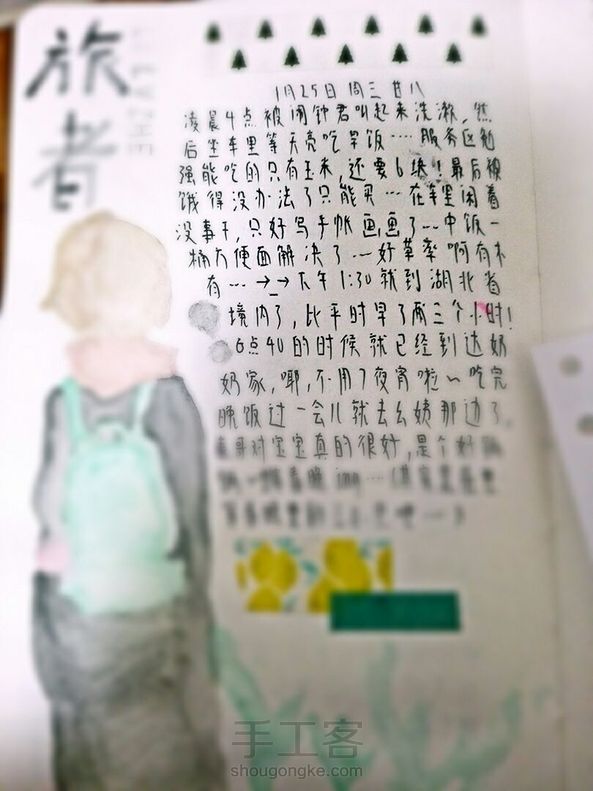 旅者
1月25日 周三 廿八
凌晨4点被闹钟君叫起来洗漱,然
后坐车里等天亮吃早饭……服务区勉
强能吃的只有玉米,还要6块!最后被
饿得没办法了只能买…在车里闲着
没事干,只好写手帐画画了…中饭一
桶方便面解决了…好草率啊有木
有…→_→下午1:30就到湖北省
境内了,比平时早了两三个小时!
6点40的时候就已经到达奶
奶家,耶,不用了夜宵啦~吃完
晚饭过一会儿就去幺姨那边了,
对宝宝真的很好,是个好
ing…(其实是
手工客
shougongke.com